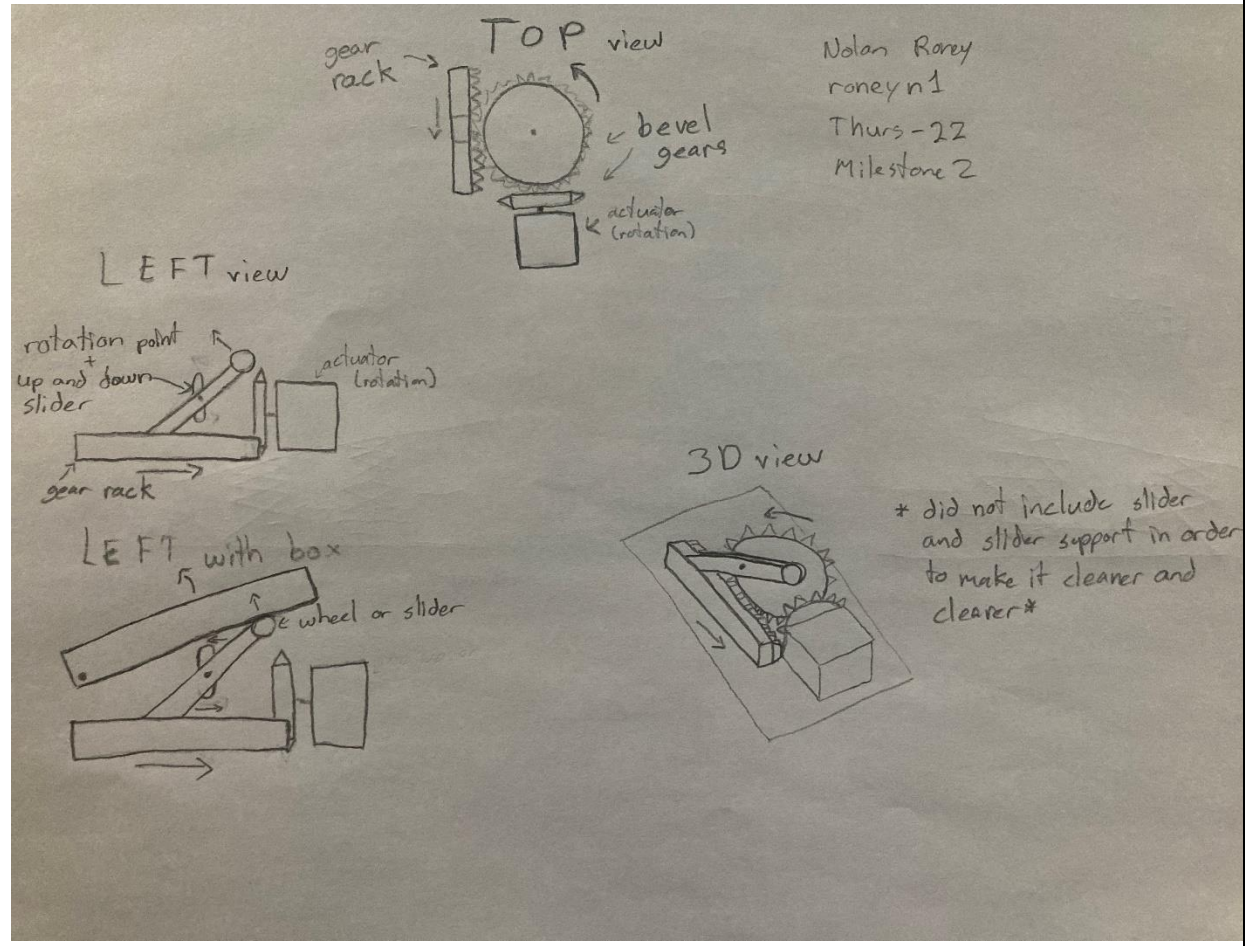 TOP view
gear
rack
bevel
gears
actuator
(rotation)
Nolan Roney
roneyn1
Thurs-22
Milestone 2
LEFT view
rotation point
+
up and down
slider
actuator
(rotation)
gear rack
LEFT with box
wheel or slider
3D view
* did not include slider
and slider support in order
to make it cleaner and
clearer*